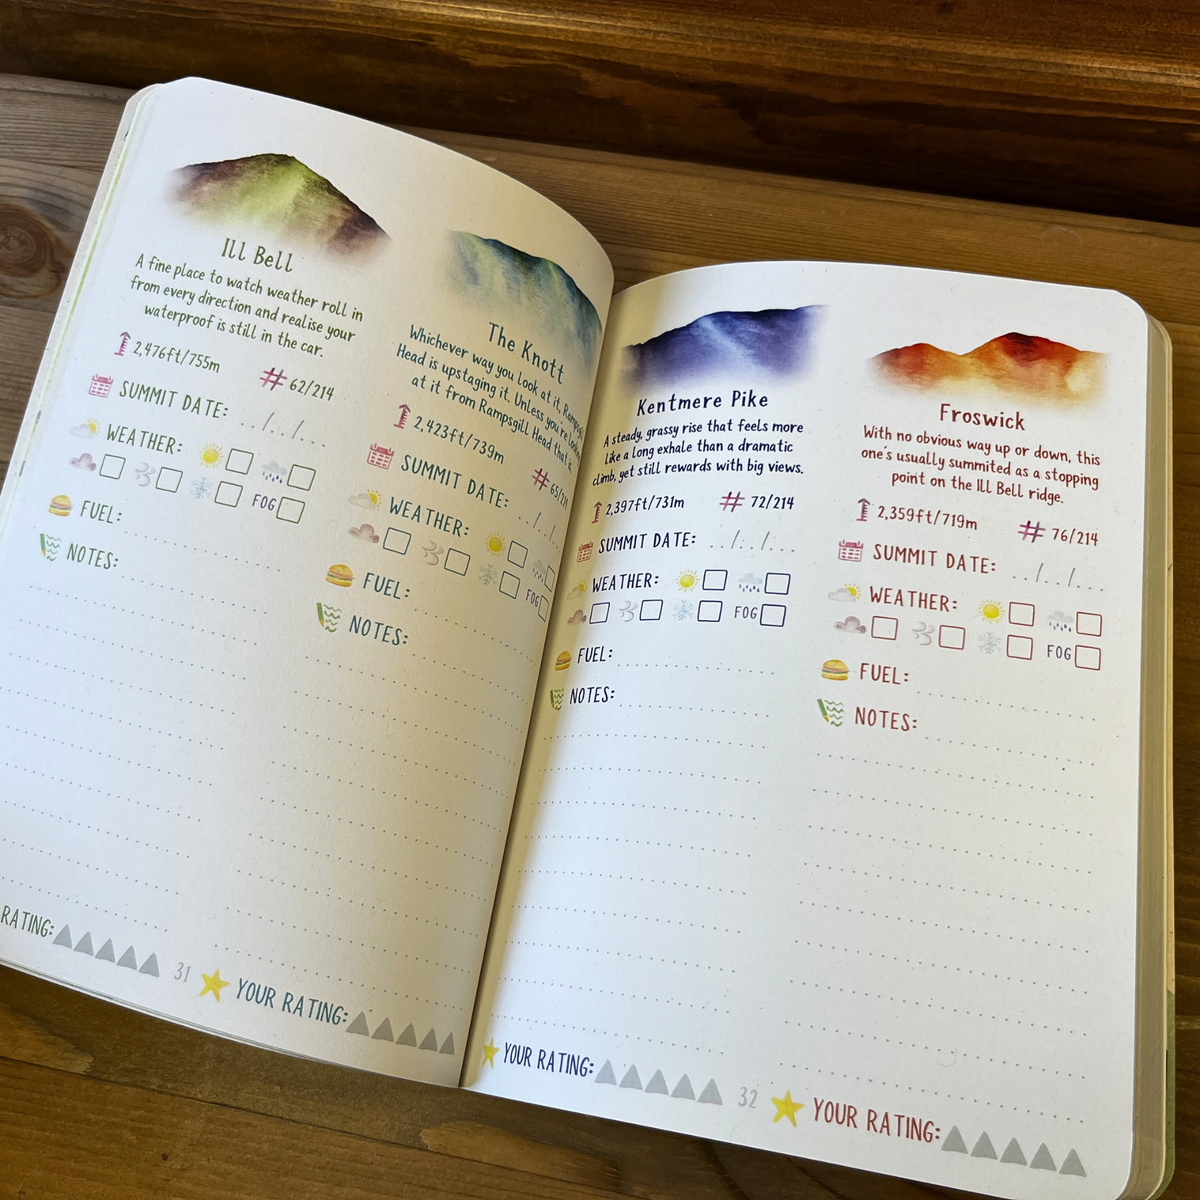 Ill Bell
A fine place to watch weather roll in
from every direction and realise your
waterproof is still in the car.
2,476ft/755m
# 62/214
SUMMIT DATE: ../../...
WEATHER:
FOG
FUEL:
NOTES:
RATING:
31
The Knott
Whichever way you look at it,
Head is upstaging it. Unless you're
at it from Rampsgill Head that is.
2,423ft/739m
#
SUMMIT DATE: ../../
WEATHER:
FOG
FUEL:
NOTES:
YOUR RATING:
Kentmere Pike
A steady, grassy rise that feels more
like a long exhale than a dramatic
climb, yet still rewards with big views.
2,397ft/731m
# 72/214
SUMMIT DATE: ../../...
WEATHER:
FOG
FUEL:
NOTES:
YOUR RATING:
32
Froswick
With no obvious way up or down, this
one's usually summited as a stopping
point on the Ill Bell ridge.
2,359ft/719m
# 76/214
SUMMIT DATE: ../../...
WEATHER:
FOG
FUEL:
NOTES:
YOUR RATING: